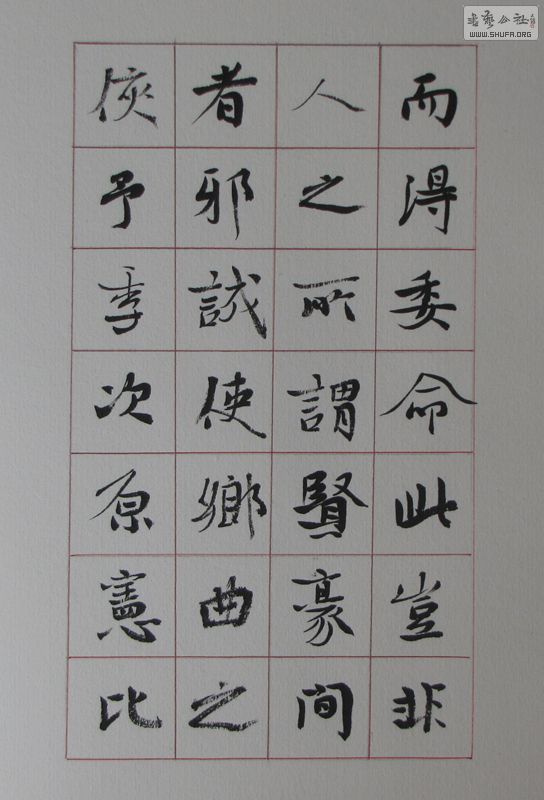 而得委命此豈非
人之所謂賢豪間
者邪誠使鄉曲之
俠予季次原憲比
书艺公社
WWW.SHUFA.ORG